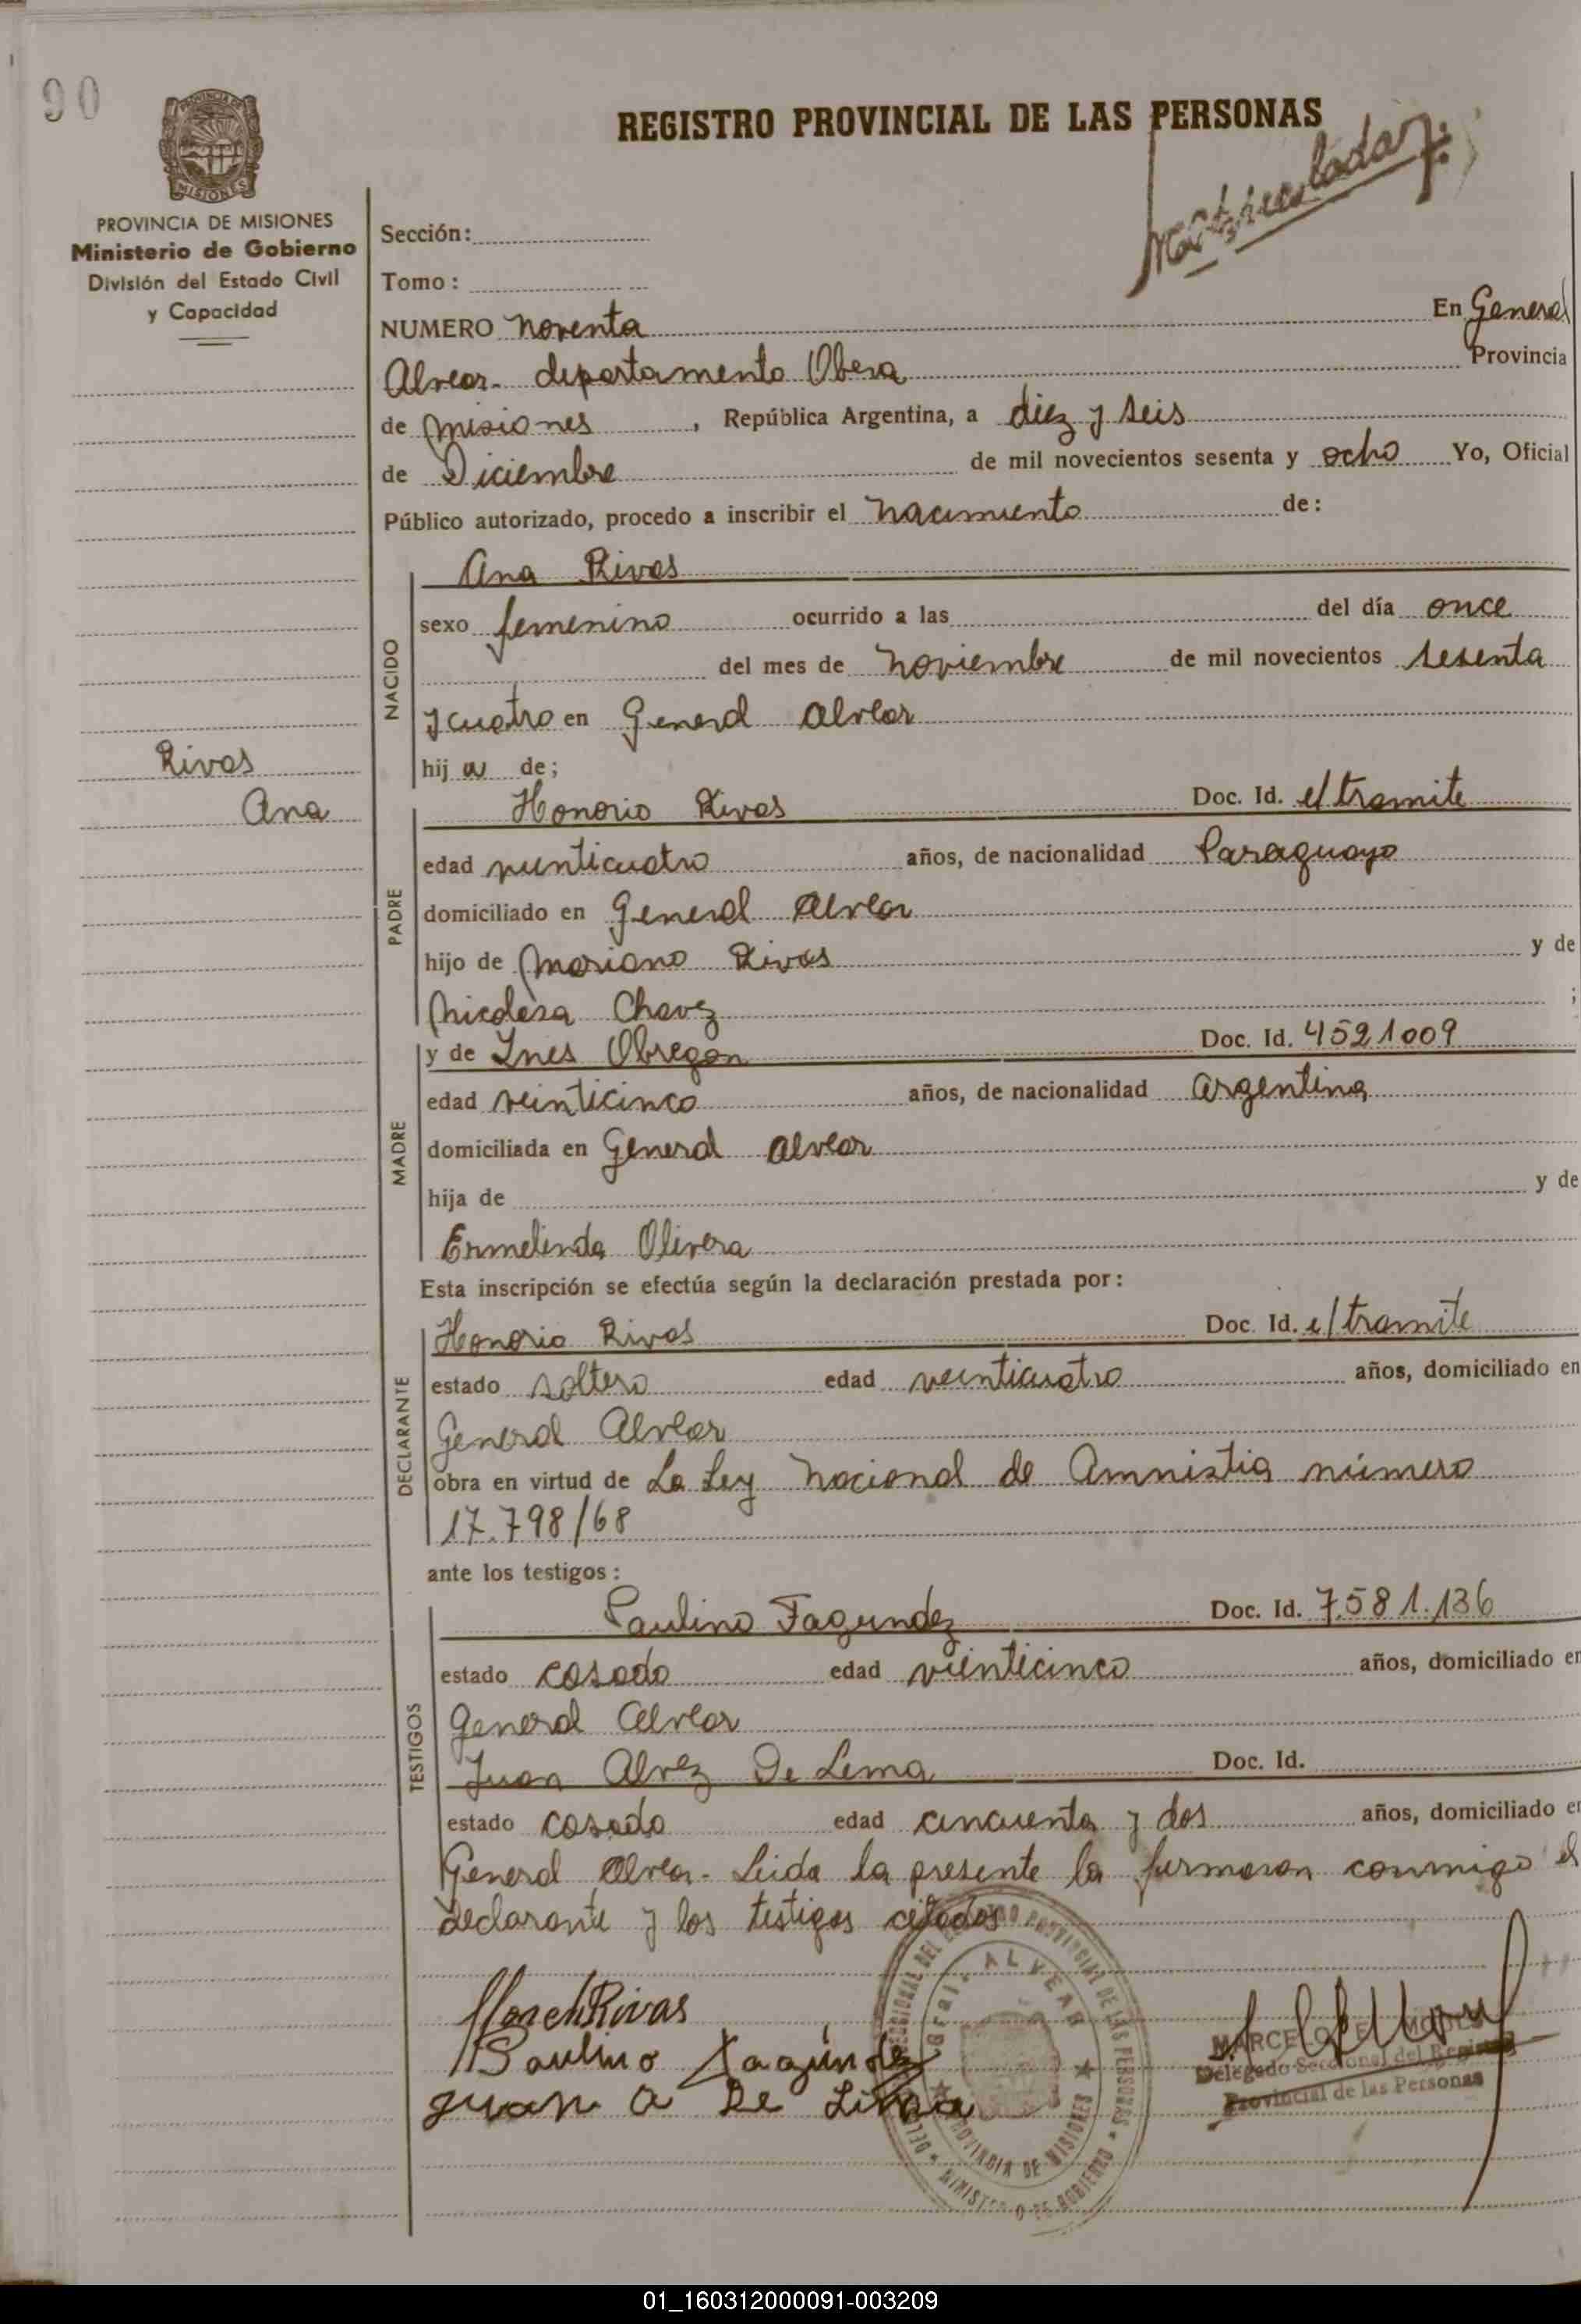 90
REGISTRO PROVINCIAL DE LAS PERSONAS
PROVINCIA DE MISIONES
Ministerio de Gobierno
División del Estado Civil
y Capacidad
Matriculada
Sección:
Tomo:
NUMERO noventa En General
Alvear- departamento Obera Provincia
de misiones, República Argentina, a diez y seis
de Diciembre de mil novecientos sesenta y ocho Yo, Oficial
Público autorizado, procedo a inscribir el nacimiento de:
Ana Rivas
NACIDO
sexo femenino ocurrido a las del día once
del mes de noviembre de mil novecientos sesenta
y cuatro en General Alvear
Rivas
Ana
hij a de;
PADRE
Honorio Rivas Doc. Id. e/tramite
edad vinticuatro años, de nacionalidad Paraguayo
domiciliado en General Alvear
hijo de Mariano Rivas y de
Nicolasa Chavez ;
MADRE
y de Ines Obregon Doc. Id. 4521009
edad veinticinco años, de nacionalidad argentina
domiciliada en General Alvear
hija de y de
Ermelinda Olivera
Esta inscripción se efectúa según la declaración prestada por:
DECLARANTE
Honorio Rivas Doc. Id. e/tramite
estado soltero edad veinticuatro años, domiciliado en
General Alvear
obra en virtud de La Ley Nacional de Amnistia número
17.798/68
ante los testigos:
TESTIGOS
Paulino Fagundez Doc. Id. 7.581.136
estado casado edad vienticinco años, domiciliado en
General Alvear
Juan Alvez De Lema Doc. Id.
estado casado edad cincuenta y dos años, domiciliado en
General Alvear- Leida la presente la firmaron conmigo el
declarante y los testigos citados
Rivas
Paulino Fagúndez
Juan A De Lima
Gral. ALVEAR
PROVINCIA DE MISIONES
REGISTRO PROVINCIAL DE LAS PERSONAS
MINISTERIO DE GOBIERNO
MARCELO
Delegado Seccional del Registro
Provincial de las Personas
01_160312000091-003209